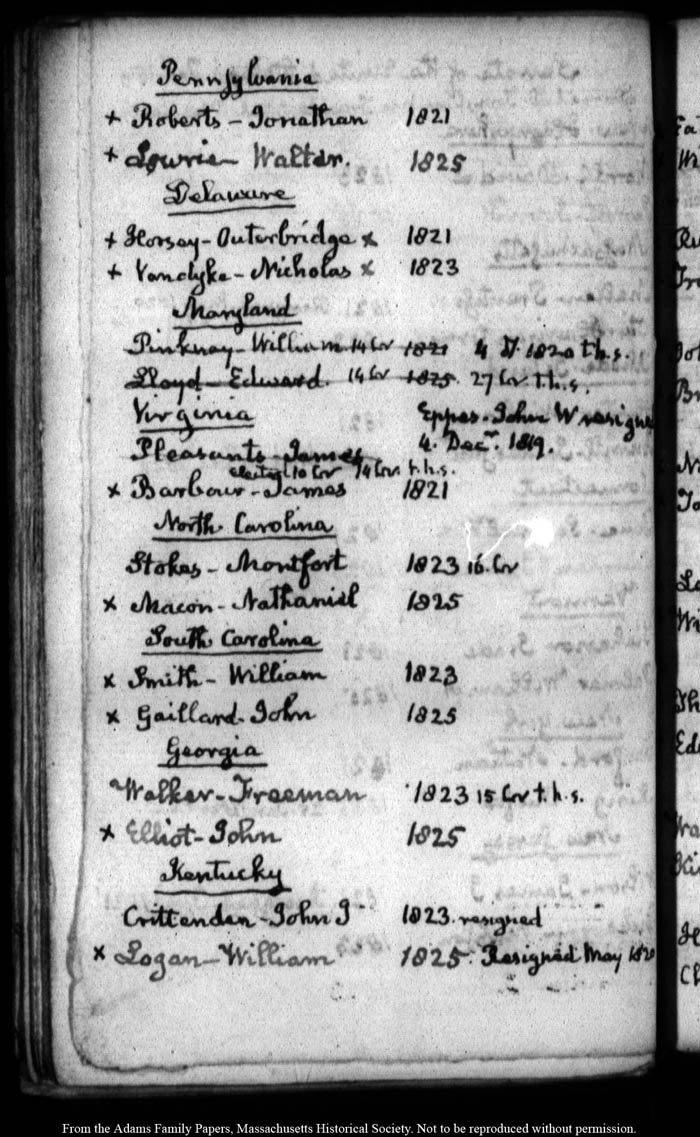 Pennsylvania
+ Roberts - Jonathan 1821
+ Lowrie - Walter. 1825
Delaware
+ Horsey - Outerbridge x 1821
+ Vandyke - Nicholas x 1823
Maryland
Pinkney - William 14 Cor 1821 4 D. 1820 t.h.s.
Lloyd - Edward. 14 Cor 1825. 27 Cor. t.h.s.
Virginia Eppes. John W resigned
Pleasants - James 4. Decr. 1819.
elected 10 Cor 14 Cor. t.h.s.
x Barbour - James 1821
North Carolina
Stokes - Montfort 1823 16. Cor
x Macon - Nathaniel 1825
South Carolina
x Smith - William 1823
x Gaillard - John 1825
Georgia
Walker - Freeman 1823 15 Cor t.h.s.
x Elliot - John 1825
Kentucky
Crittenden - John J 1823. resigned
x Logan - William 1825. Resigned May 1820
From the Adams Family Papers, Massachusetts Historical Society. Not to be reproduced without permission.